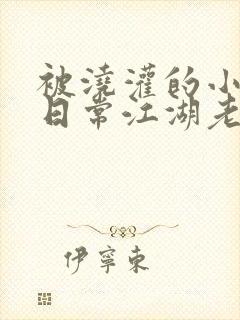 被澆灌的小
日常江湖老
伊寧東